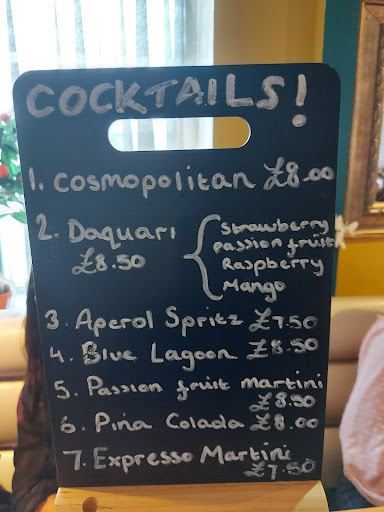 COCKTAILS!
1. Cosmopolitan £8.00
2. Daquari
£8.50
Strawberry
Passion fruit
Raspberry
Mango
3. Aperol Spritz £7.50
4. Blue Lagoon £8.50
5. Passion fruit martini
£8.50
6. Pina Colada £8.00
7. Expresso Martini
£7.50